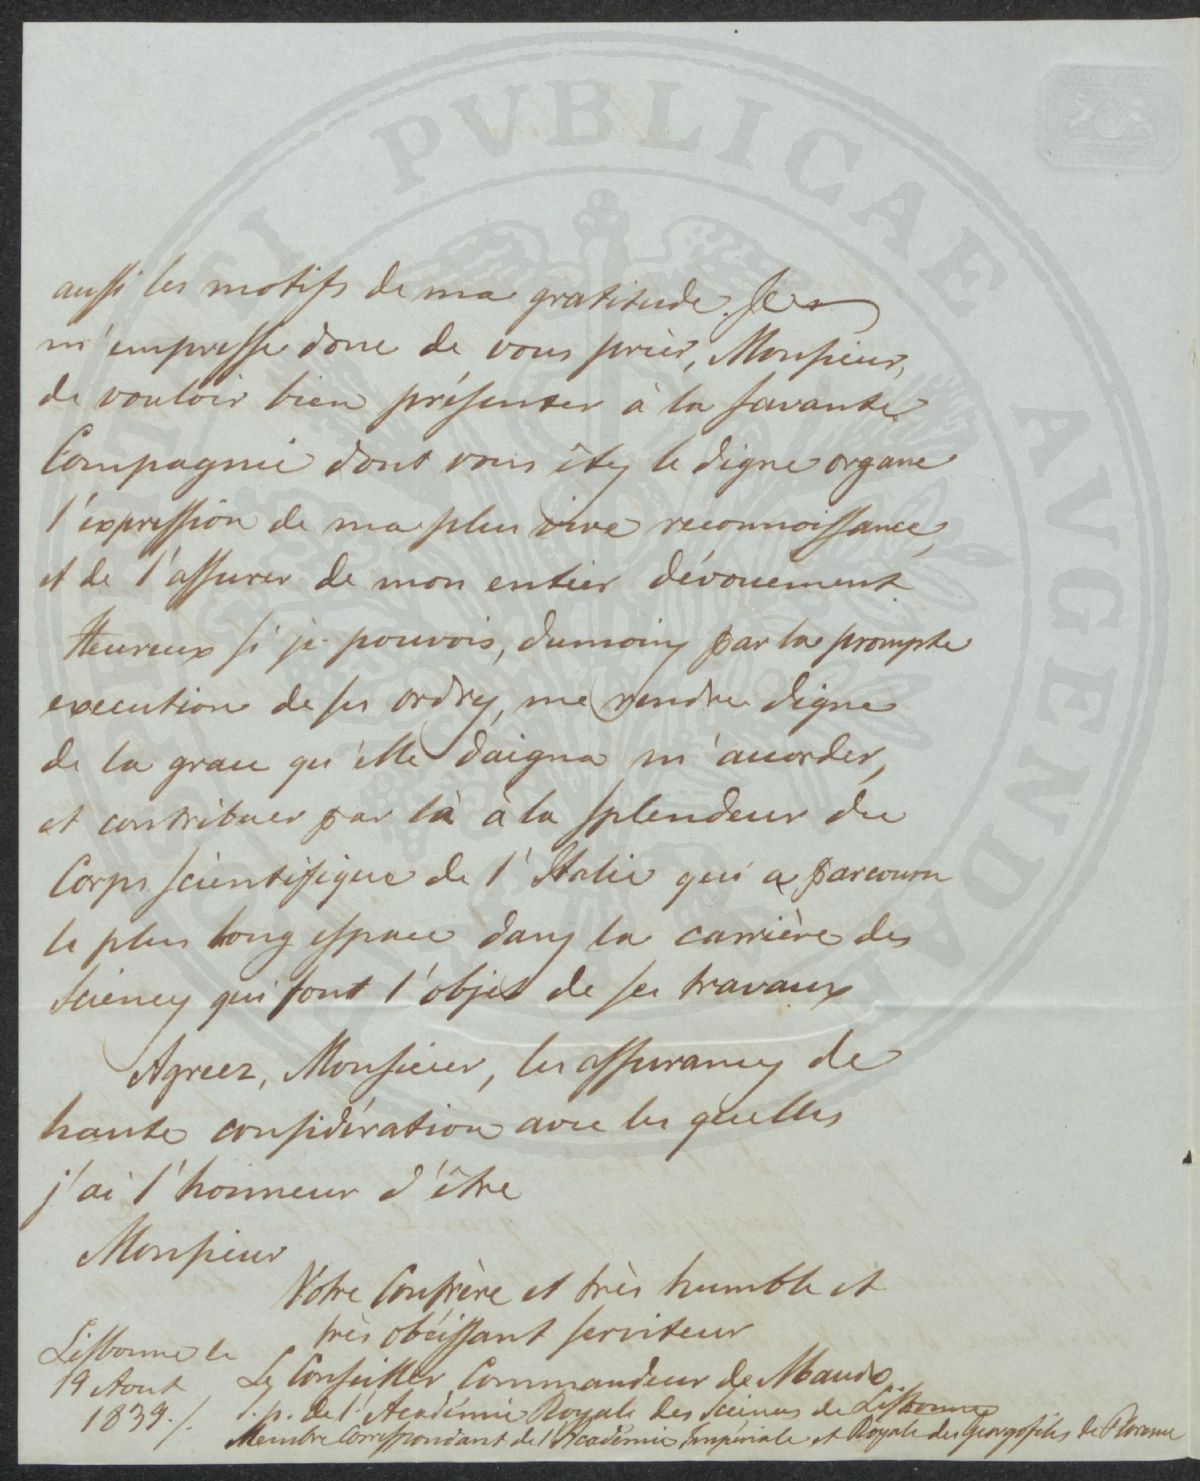 PROSPERITATI PUBLICAE AUGENDAE
aussi les motifs de ma gratitude. Je
m'empresse donc de vous prier, Monsieur,
de vouloir bien présenter à la savante
Compagnie dont vous êtes le digne organe
l'expression de ma plus vive reconnoissance,
et de l'assurer de mon entier dévouement
Heureux si je pouvois, dumoins par la prompte
execution de ses ordres, me rendre digne
de la grace qu'elle daigna m'accorder,
et contribuer par là à la splendeur du
Corps scientifique de l'Italie qui a parcouru
le plus long espace dans la carrière des
sciences qui font l'objet de ses travaux
Agreez, Monsieur, les assurances de
haute considération avec les quelles
j'ai l'honneur d'être
Monsieur
Votre Confrère et très humble et
très obéissant serviteur
Le Conseiller Commandeur de
S. p. de l'Académie Royale des Sciences de Lisbonne
Membre Correspondant de l'Académie Impériale et Royale des Georgofiles de Florence
Lisbonne le
19 Aout
1839./.